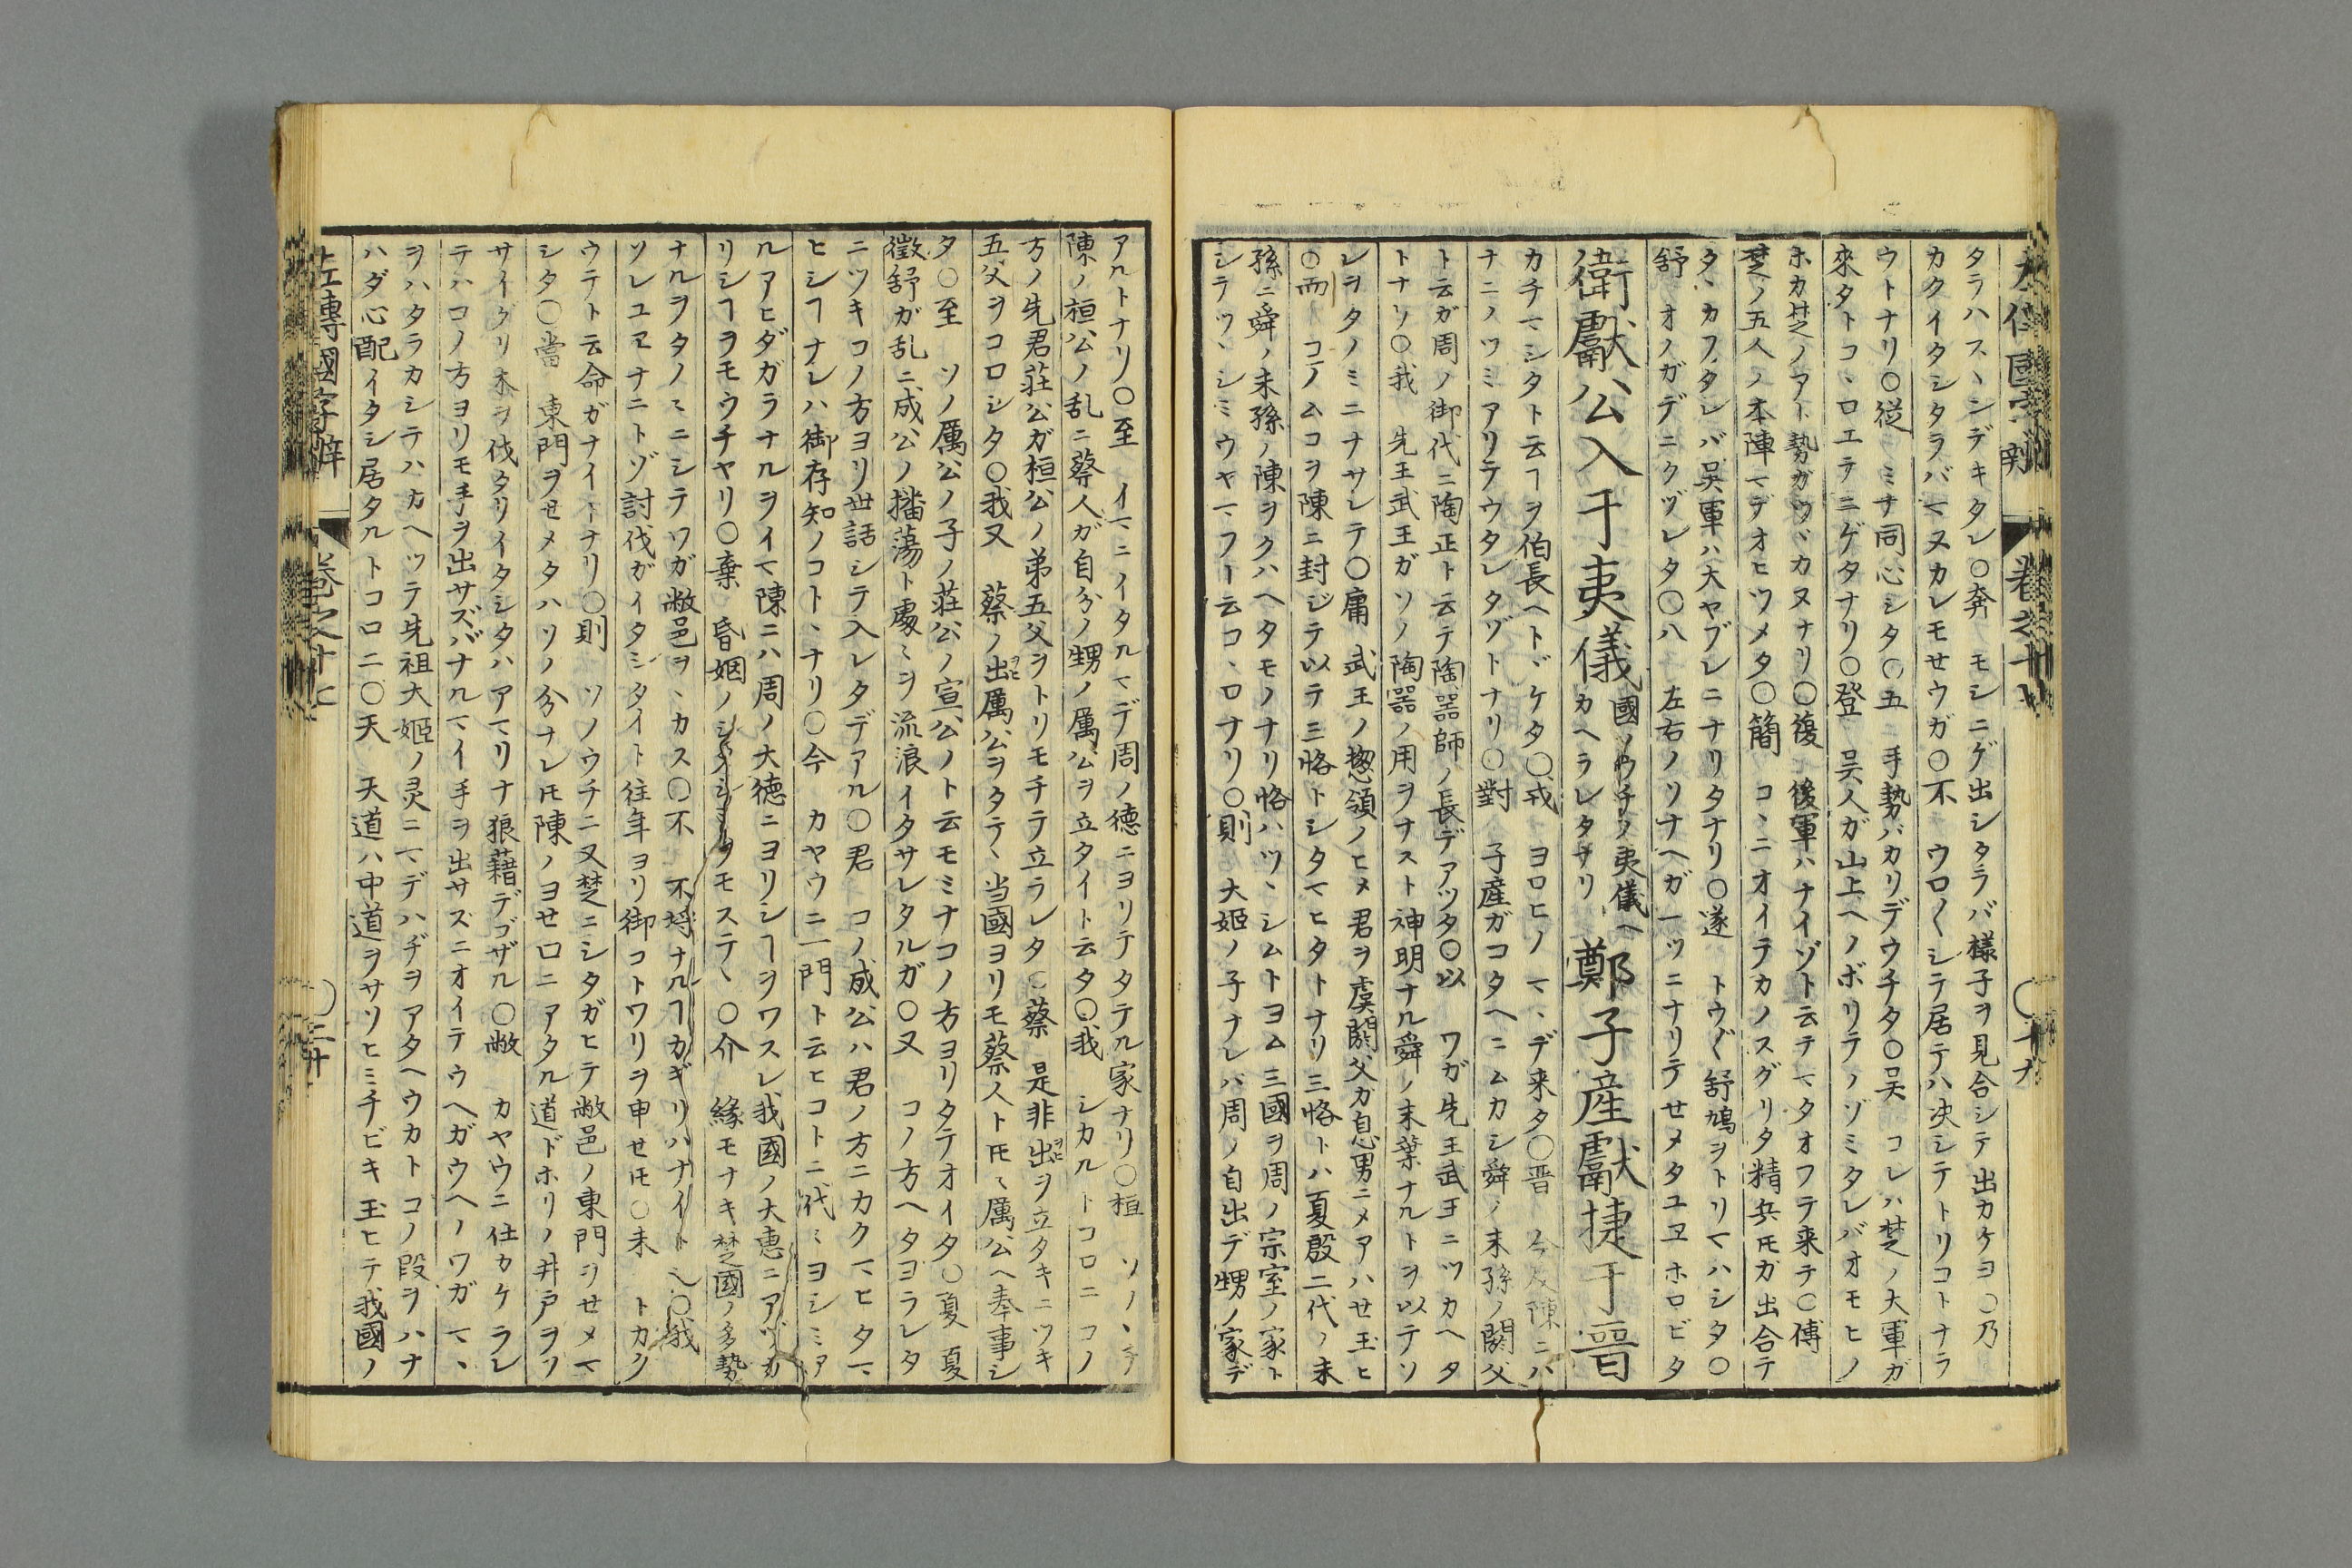 タラハスヽシデキタレ〇奔　モシニゲ出シタラバ様子ヲ見合シテ出カケヨ〇乃
カクイタシタラバマヌカレモせウガ〇不　ウロ〱シテ居テハ决シテトリコトナラ
ウトナリ〇従　ミナ同心シタ〇五　手勢バカリデウチタ〇吴　コレハ楚ノ大軍ガ
來タトコヽロエテニゲタナリ〇登　吴人ガ山上ヘノボリテノゾミタレバオモヒノ
ホカ楚ノアト勢ガツヾカヌナリ〇復　後軍ハナイゾト云テマタオフテ来テ〇傅
楚ノ五人ノ本陣マデオヒツメタ〇簡　コヽニオイテカノスグリタ精兵𪜈ガ出合テ
タヽカフタレバ吴軍ハ大ヤブレニナリタナリ〇遂　トウ〲舒鳩ヲトリマハシタ〇
舒　オノガデニクヅレタ〇八　左右ノソナヘガ一ツニナリテせメタユヱホロビタ
衛獻公入于夷儀　國ノウチノ夷儀ヘカヘラレタナリ　鄭子産獻捷于晋
カチマシタト云ヿヲ伯長ヘトヾケタ〇戎　ヨロヒノマヽデ来タ〇晋　今度陳ニハ
ナニノツミアリテウタレタゾトナリ〇對　子産ガコタヘニムカシ舜ノ末孫ノ閼父
ト云ガ周ノ御代ニ陶正ト云テ陶器師ノ長デアツタ〇以　ワガ先王武王ニツカヘタ
トナリ〇我　先王武王ガソノ陶器ノ用ヲナスト神明ナル舜ノ末葉ナルトヲ以テソ
レヲタノミニナサレテ〇庸　武王ノ惣領ノヒメ君ヲ虞閼父ガ息男ニメアハせ玉ヒ
〇而　コノムコヲ陳ニ封ジテ以テ三恪トシタマヒタトナリ三恪トハ夏殷二代ノ末
孫ニ舜ノ末孫ノ陳ヲクハヘタモノナリ恪ハツヽシムトヨム三國ヲ周ノ宗室ノ家ト
シテツヽシミウヤマフト云コヽロナリ〇則　大姫ノ子ナレバ周ノ自出デ甥ノ家デ
アルトナリ〇至　イマニイタルマデ周ノ德ニヨリテタテル家ナリ〇桓　ソノヽチ
陳ノ桓公ノ乱ニ蔡人ガ自分ノ甥ノ厲公ヲ立タイト云タ〇我　シカルトコロニコノ
方ノ先君荘公ガ桓公ノ弟五父ヲトリモチテ立ラレタ〇蔡　是非出ヲ立タキニツキ
五父ヲコロシタ〇我又　蔡ノ出厲公ヲタテヽ当國ヨリモ蔡人ト𪜈ヽ厲公ヘ奉事シ
タ〇至　ソノ厲公ノ子ノ荘公ノ宣公ノト云モミナコノ方ヨリタテオイタ〇夏　夏
徴舒ガ乱ニ成公ノ播蕩ト處〻ヲ流浪イタサレタルガ〇又　コノ方ヘタヨラレタ
ニツキコノ方ヨリ世話シテ入レタデアル〇君　コノ成公ハ君ノ方ニカクマヒタマ
ヒシヿナレハ御存知ノコトヽナリ〇今　カヤウニ一門ト云ヒコトニ代〻ヨシミア
ルアヒダガラナルヲイマ陳ニハ周ノ大德ニヨリシヿヲワスレ我國ノ大惠ニアヅカ
リシヿヲモウチヤリ〇棄　昏姻ノシタシミヲモステヽ〇介　緣モナキ楚國ノ多勢
ナルヲタノミニシテワガ敝邑ヲヽカス〇不　不埒ナルヿカギリハナイト〇我
ソレユヱナニトゾ討伐ガイタシタイト往年ヨリ御コトワリヲ申せ𪜈〇未　トカク
ウテト云命ガナイトナリ〇則　ソノウチニ又楚ニシタガヒテ敝邑ノ東門ヲせメマ
シタ〇當　東門ヲせメタハソノ分ナレ𪜈陳ノヨせ口ニアタル道ドホリノ井戸ヲフ
サイダリ木ヲ伐タリイタシタハアマリナ狼藉デゴザル〇敝　カヤウニ仕カケラレ
テハコノ方ヨリモ手ヲ出サズバナルマイ手ヲ出サズニオイテウヘガウヘノワガマヽ
ヲハタラカシテハカヘツテ先祖大姫ノ灵ニマデハヂヲアタヘウカトコノ段ヲハナ
ハダ心配イタシ居タルトコロニ〇天　天道ハ中道ヲサソヒミチビキ玉ヒテ我國ノ
左傳國字辯　卷之十七　〇二十